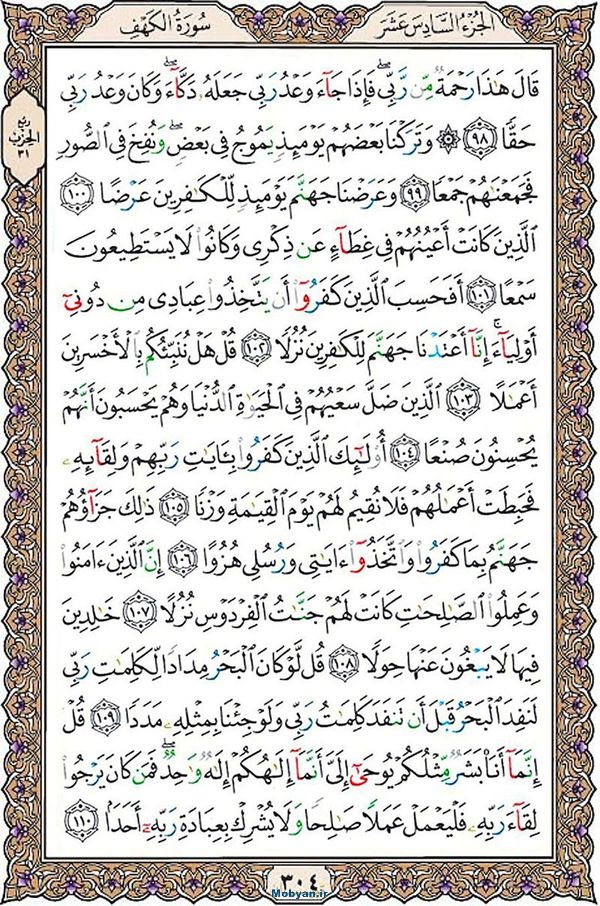 سُورَةُ الكَهْفِ
الجُزءُ السَّادِسَ عَشَرَ
ربع
الحزب
٣١
قَالَ هَٰذَا رَحْمَةٌ مِّن رَّبِّي ۖ فَإِذَا جَاءَ وَعْدُ رَبِّي جَعَلَهُ دَكَّاءَ ۖ وَكَانَ وَعْدُ رَبِّي
حَقًّا ٩٨ ۞ وَتَرَكْنَا بَعْضَهُمْ يَوْمَئِذٍ يَمُوجُ فِي بَعْضٍ ۖ وَنُفِخَ فِي الصُّورِ
فَجَمَعْنَاهُمْ جَمْعًا ٩٩ وَعَرَضْنَا جَهَنَّمَ يَوْمَئِذٍ لِّلْكَافِرِينَ عَرْضًا ١٠٠
الَّذِينَ كَانَتْ أَعْيُنُهُمْ فِي غِطَاءٍ عَن ذِكْرِي وَكَانُوا لَا يَسْتَطِيعُونَ
سَمْعًا ١٠١ أَفَحَسِبَ الَّذِينَ كَفَرُوا أَن يَتَّخِذُوا عِبَادِي مِن دُونِي
أَوْلِيَاءَ ۚ إِنَّا أَعْتَدْنَا جَهَنَّمَ لِلْكَافِرِينَ نُزُلًا ١٠٢ قُلْ هَلْ نُنَبِّئُكُم بِالْأَخْسَرِينَ
أَعْمَالًا ١٠٣ الَّذِينَ ضَلَّ سَعْيُهُمْ فِي الْحَيَاةِ الدُّنْيَا وَهُمْ يَحْسَبُونَ أَنَّهُمْ
يُحْسِنُونَ صُنْعًا ١٠٤ أُولَٰئِكَ الَّذِينَ كَفَرُوا بِآيَاتِ رَبِّهِمْ وَلِقَائِهِ
فَحَبِطَتْ أَعْمَالُهُمْ فَلَا نُقِيمُ لَهُمْ يَوْمَ الْقِيَامَةِ وَزْنًا ١٠٥ ذَٰلِكَ جَزَاؤُهُمْ
جَهَنَّمُ بِمَا كَفَرُوا وَاتَّخَذُوا آيَاتِي وَرُسُلِي هُزُوًا ١٠٦ إِنَّ الَّذِينَ آمَنُوا
وَعَمِلُوا الصَّالِحَاتِ كَانَتْ لَهُمْ جَنَّاتُ الْفِرْدَوْسِ نُزُلًا ١٠٧ خَالِدِينَ
فِيهَا لَا يَبْغُونَ عَنْهَا حِوَلًا ١٠٨ قُل لَّوْ كَانَ الْبَحْرُ مِدَادًا لِّكَلِمَاتِ رَبِّي
لَنَفِدَ الْبَحْرُ قَبْلَ أَن تَنفَدَ كَلِمَاتُ رَبِّي وَلَوْ جِئْنَا بِمِثْلِهِ مَدَدًا ١٠٩ قُلْ
إِنَّمَا أَنَا بَشَرٌ مِّثْلُكُمْ يُوحَىٰ إِلَيَّ أَنَّمَا إِلَٰهُكُمْ إِلَٰهٌ وَاحِدٌ ۖ فَمَن كَانَ يَرْجُوا
لِقَاءَ رَبِّهِ فَلْيَعْمَلْ عَمَلًا صَالِحًا وَلَا يُشْرِكْ بِعِبَادَةِ رَبِّهِ أَحَدًا ١١٠
٣٠٤
Mobyan.ir